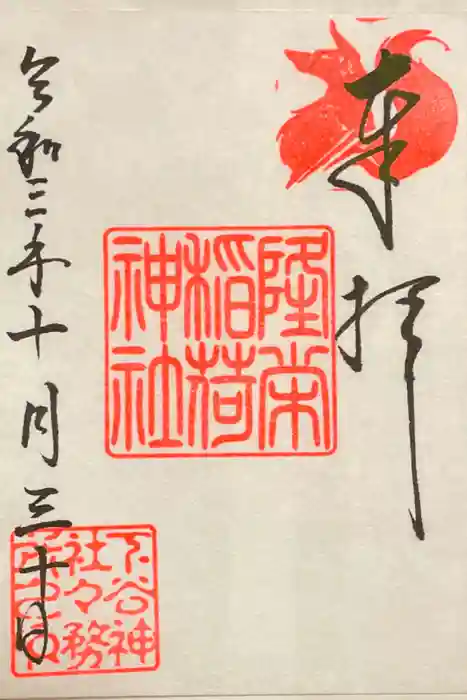 奉拝
隆栄
稲荷
神社
令和三年十月三十日
下谷神
社々務
所之印